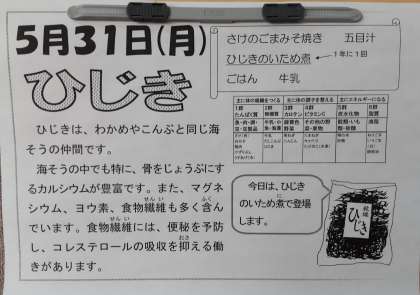 5月31日(月)
ひじき
さけのごまみそ焼き 五目汁
ひじきのいため煮 1年に1回
ごはん 牛乳
主に体の組織をつくる 主に体の調子を整える 主にエネルギーになる
1群 2群 3群 4群 5群 6群
たんぱく質 無機質 カロテン ビタミンC 炭水化物 脂質
ひじきは、わかめやこんぶと同じ海
そうの仲間です。
海そうの中でも特に、骨をじょうぶにす
るカルシウムが豊富です。また、マグネ
シウム、ヨウ素、食物繊維も多く含ん
でいます。食物繊維には、便秘を予防
し、コレステロールの吸収を抑える働
きがあります。
今日は、ひじき
のいため煮で登場
します。
乾燥
ひじき